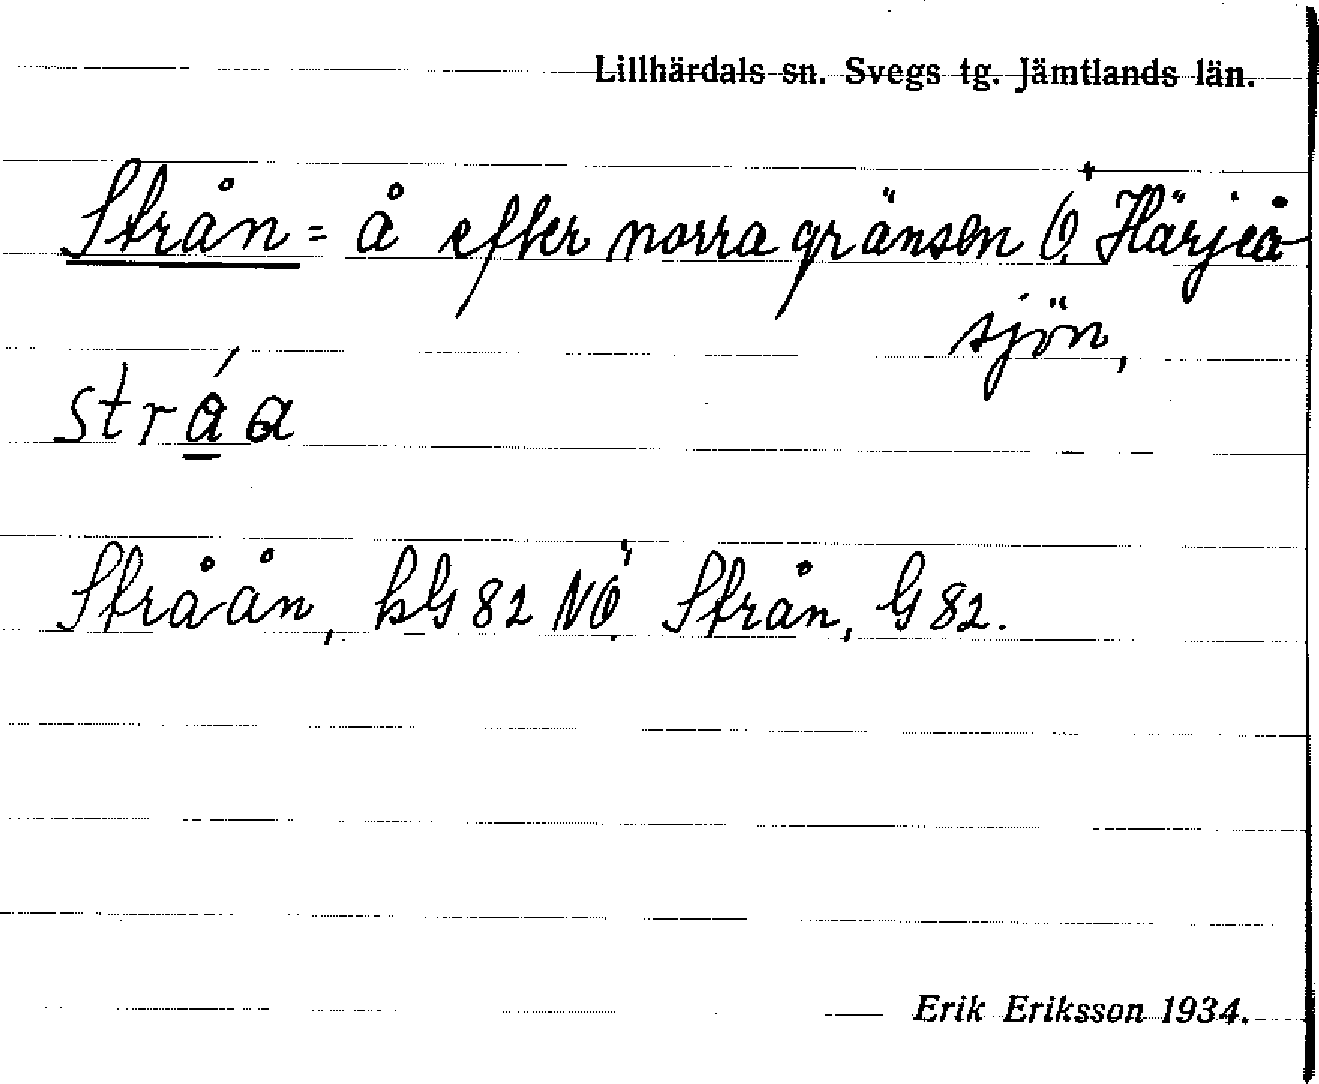 Lillhärdals sn. Svegs tg. Jämtlands län.
Strån = å efter norra gränsen Ö. Härjeå-
sjön,
stráa
Stråån, hG 82 NÖ. Strån, G 82.
Erik Eriksson 1934.